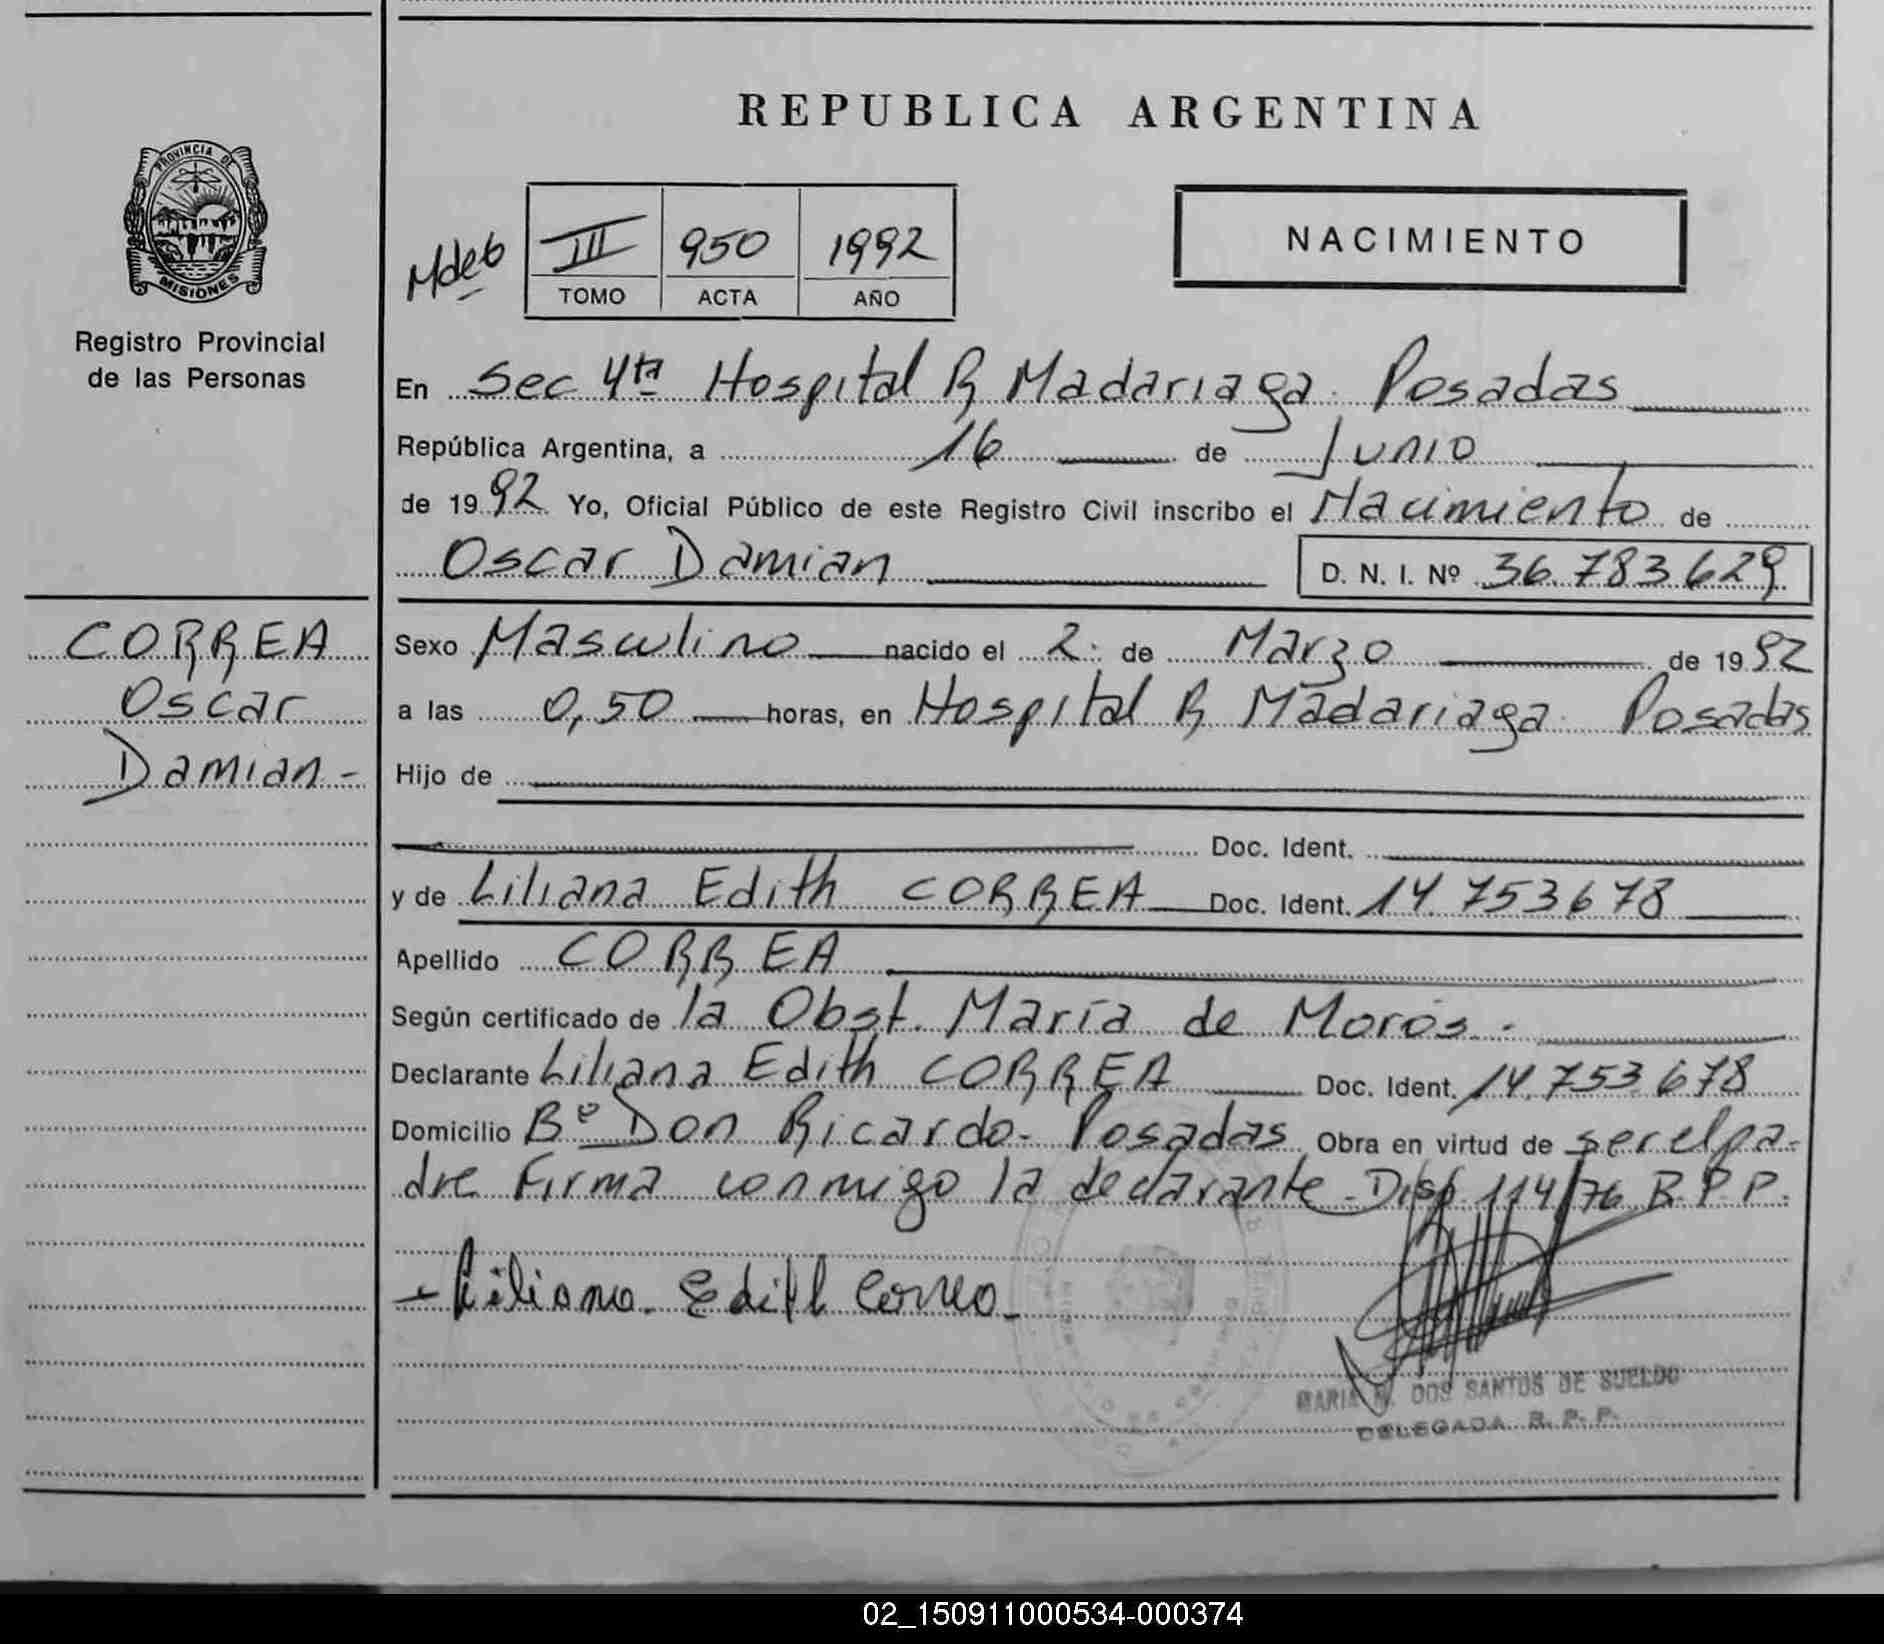 REPUBLICA ARGENTINA
PROVINCIA DE
MISIONES
Registro Provincial
de las Personas
III 950 1992
TOMO ACTA AÑO
NACIMIENTO
En Sec 4ta Hospital R Madariaga. Posadas
República Argentina, a 16 de Junio
de 1992 Yo, Oficial Público de este Registro Civil inscribo el Nacimiento de
Oscar Damian D. N. I. Nº 36.783.629
CORREA
Oscar
Damian-
Sexo Masculino nacido el 2. de Marzo de 1992
a las 0,50 horas, en Hospital R Madariaga. Posadas
Hijo de
Doc. Ident.
y de Liliana Edith CORREA Doc. Ident. 14.753.678
Apellido CORREA
Según certificado de la Obst. María de Moros.
Declarante Liliana Edith CORREA Doc. Ident. 14.753.678
Domicilio Bº Don Ricardo- Posadas Obra en virtud de ser el pa-
dre Firma conmigo la declarante-Disp. 114/76 R.P.P.
Liliana Edith Correa
MARIA DOS SANTOS DE SUELDO
DELEGADA R. P. P.
02_150911000534-000374